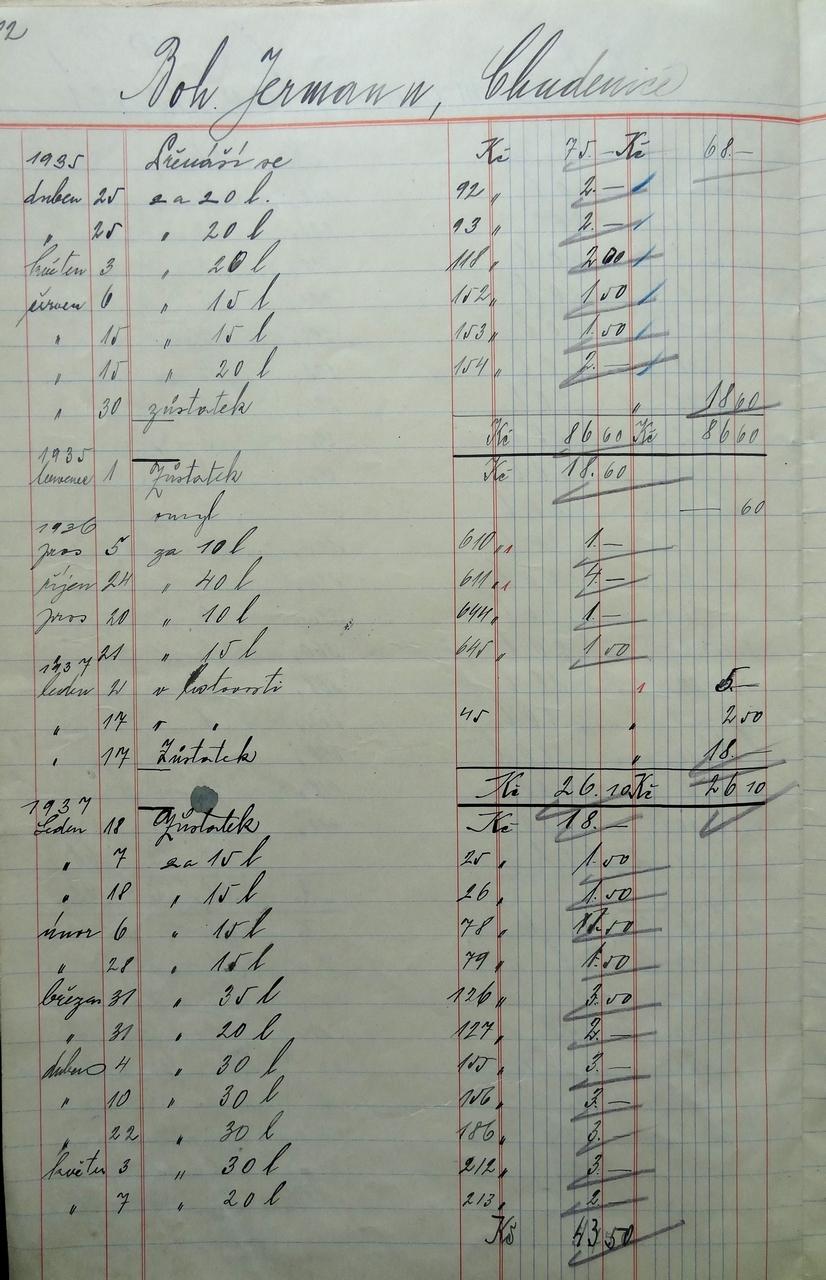 Boh. Jermann, Chudenice
1935 Přenáší se Kč 75.— Kč 68.—
duben 25 za 20 l. 92 „ 2.—
„ 25 „ 20 l 93 „ 2.—
květen 3 „ 20 l 118 „ 2 00
červen 6 „ 15 l 152 „ 1.50
„ 15 „ 15 l 153 „ 1.50
„ 15 „ 20 l 154 „ 2.—
„ 30 zůstatek „ 18 60
Kč 86 60 Kč 86 60
1935
červenec 1 Zůstatek Kč 18.60
omyl — 60
1936
pros 5 za 10 l 610 „ 1.—
říjen 24 „ 40 l 611 „ 4.—
pros 20 „ 10 l 644 „ 1.—
21 „ 15 l 645 „ 1 50
1937
leden 2 v hotovosti 5—
„ 17 „ „ 45 „ 2 50
„ 17 Zůstatek „ 18.—
Kč 26.10 Kč 26 10
1937
Leden 18 Zůstatek Kč 18.—
„ 7 za 15 l 25 „ 1.50
„ 18 „ 15 l 26 „ 1.50
únor 6 „ 15 l 78 „ 1.50
„ 28 „ 15 l 79 „ 1.50
březen 31 „ 35 l 126 „ 3.50
„ 31 „ 20 l 127 „ 2.—
duben 4 „ 30 l 155 „ 3.—
„ 10 „ 30 l 156 „ 3.—
„ 22 „ 30 l 186 „ 3.
květen 3 „ 30 l 212 „ 3.—
„ 7 „ 20 l 213 „ 2.—
Kč 43 50